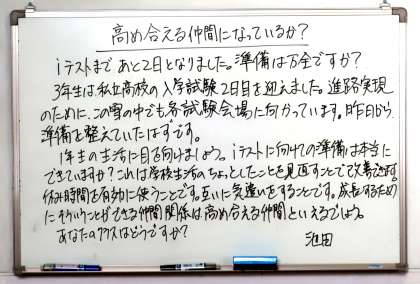 高め合える仲間になっているか？
iテストまであと2日となりました。準備は万全ですか？
3年生は私立高校の入学試験2日目を迎えました。進路実現
のために、この雪の中でも各試験会場に向かっています。昨日から
準備を整えていたはずです。
1年生の生活に目を向けましょう。iテストに向けての準備は本当に
できていますか？これは学校生活のちょっとしたことを見直すことで改善できます。
休み時間を有効に使うことです。互いに気遣いをすることです。成長するため
にそういうことができる仲間関係は高め合える仲間といえるでしょう。
あなたのクラスはどうですか？
池田